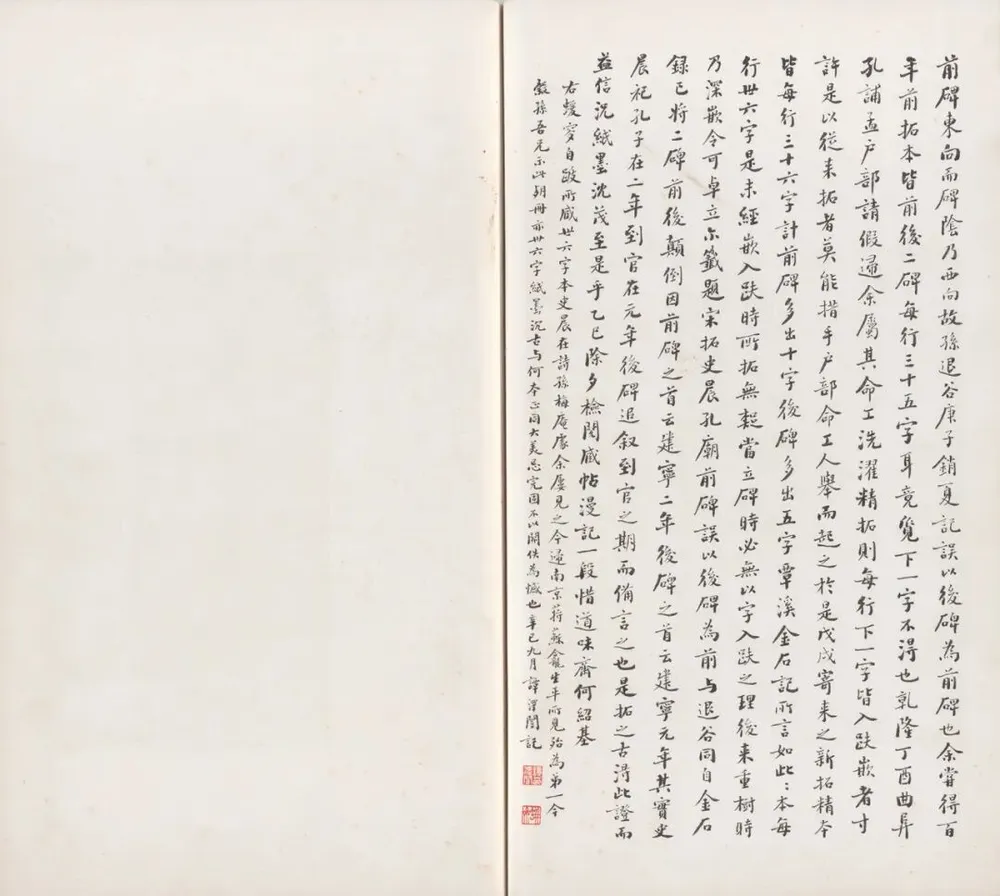 前碑東向而碑陰乃西向故孫退谷庚子銷夏記誤以後碑為前碑也余嘗得百
年前拓本皆前後二碑每行三十五字耳竟覓下一字不得也乾隆丁酉曲阜
孔誧孟戶部請假還余屬其命工洗濯精拓則每行下一字皆入趺嵌者寸
許是以從來拓者莫能措手戶部命工人舉而起之於是戊戌寄來之新拓精本
皆每行三十六字計前碑多出十字後碑多出五字覃溪金石記所言如此：本每
行卅六字是未經嵌入趺時所拓無疑當立碑時必無以字入趺之理後來重樹時
乃深嵌令可卓立尒籤題宋拓史晨孔廟前碑誤以後碑為前与退谷同自金石
錄已將二碑前後顛倒因前碑之首云建寧二年後碑之首云建寧元年其實史
晨祀孔子在二年到官在元年後碑追敘到官之期而備言之也是拓之古淂此證而
益信況紙墨沈茂至是乎乙巳除夕檢閱臧帖漫記一段惜道味齋何紹基
右蝯叟自跋所臧卅六字本史晨在詩孫梅庵處余屢見之今還南京蔣蘇龕生平所見殆為第一今
穀孫吾兄示此胡冊亦卅六字紙墨沉古与何本正同大美忌完固不以開佚為憾也辛巳九月譚澤闓記